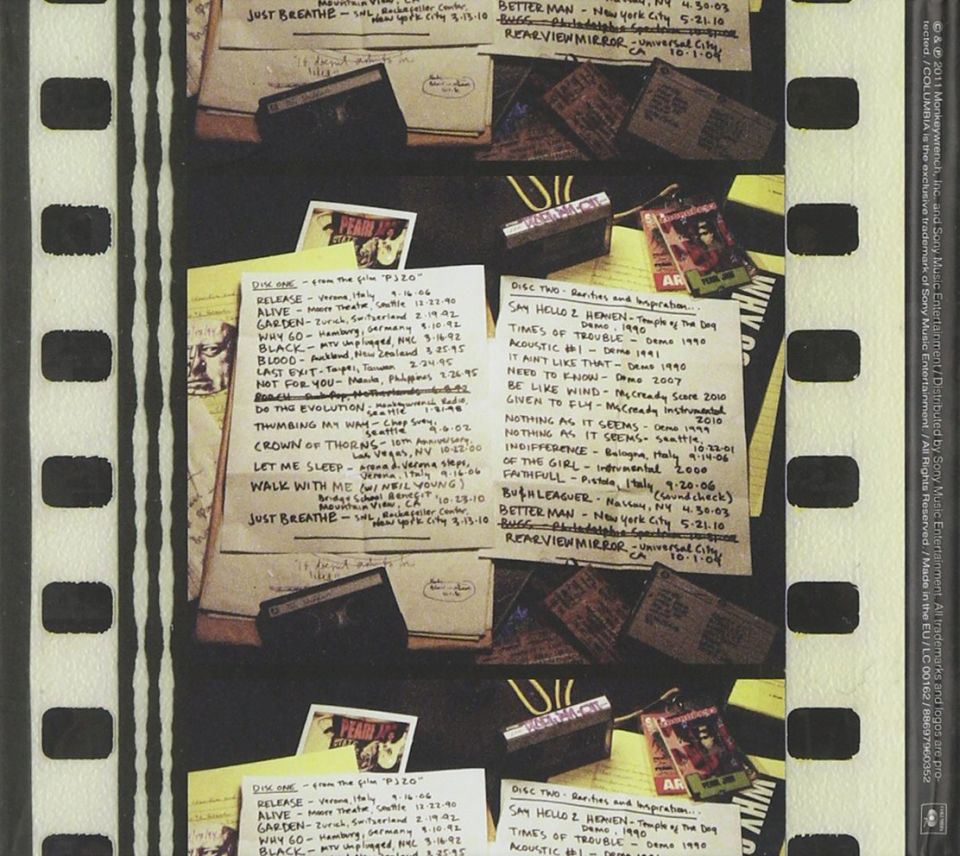 MOUNTAIN VIEW, CA
JUST BREATHE - SNL, Rockefeller Center,
New York City 3.13.10
NASSAU, NY 4.30.03
BETTER MAN - New York City 5.21.10
BUGS - Philadelphia Spectrum 10.31.09
REARVIEWMIRROR - Universal City,
CA 10.1.09
PEARL JAM
DISC ONE - from the film "PJ20"
RELEASE - Verona, Italy 9.16.06
ALIVE - Moore Theatre, Seattle 12.22.90
GARDEN - Zurich, Switzerland 2.19.92
WHY GO - Hamburg, Germany 3.10.92
BLACK - MTV Unplugged, NYC 3.16.92
BLOOD - Auckland, New Zealand 3.25.95
LAST EXIT - Taipei, Taiwan 2.24.95
NOT FOR YOU - Manila, Philippines 2.26.95
PORCH - Pink Pop, Netherlands 6.8.92
DO THE EVOLUTION - Monkeywrench Radio,
Seattle 1.31.98
THUMBING MY WAY - Chop Suey,
Seattle 9.6.02
CROWN OF THORNS - 10th Anniversary,
Las Vegas, NV 10.22.00
LET ME SLEEP - Arena d. Verona steps,
Verona, Italy 9.16.06
WALK WITH ME (w/ NEIL YOUNG)
Bridge School Benefit
Mountain View, CA 10.23.10
JUST BREATHE - SNL, Rockefeller Center,
New York City 3.13.10
DISC TWO - Rarities and Inspiration...
SAY HELLO 2 HEAVEN - Temple of The Dog
Demo, 1990
TIMES OF TROUBLE - Demo 1990
ACOUSTIC #1 - Demo 1991
IT AIN'T LIKE THAT - Demo 1990
NEED TO KNOW - Demo 2007
BE LIKE WIND - McCready Score 2010
GIVEN TO FLY - McCready Instrumental
2010
NOTHING AS IT SEEMS - Demo 1999
NOTHING AS IT SEEMS - Seattle,
10.22.01
INDIFFERENCE - Bologna, Italy 9.14.06
OF THE GIRL - Instrumental 2000
FAITHFULL - Pistoia, Italy 9.20.06
(soundcheck)
BU$HLEAGUER - Nassau, NY 4.30.03
BETTER MAN - New York City 5.21.10
BUGS - Philadelphia Spectrum 10.31.09
REARVIEWMIRROR - Universal City,
CA 10.1.09
WHY GO
PEARL JAM
DISC ONE - from the film "PJ20"
RELEASE - Verona, Italy 9.16.06
ALIVE - Moore Theatre, Seattle 12.22.90
GARDEN - Zurich, Switzerland 2.19.92
WHY GO - Hamburg, Germany 3.10.92
BLACK - MTV Unplugged, NYC 3.16.92
DISC TWO - Rarities and Inspiration...
SAY HELLO 2 HEAVEN - Temple of The Dog
Demo, 1990
TIMES OF TROUBLE - Demo 1990
ACOUSTIC #1 - Demo 1991
WHY GO
© & ℗ 2011 Monkeywrench, Inc. and Sony Music Entertainment / Distributed by Sony Music Entertainment. All trademarks and logos are pro-
tected. / COLUMBIA is the exclusive trademark of Sony Music Entertainment. / All Rights Reserved. / Made in the EU / LC 00162 / 88697960352